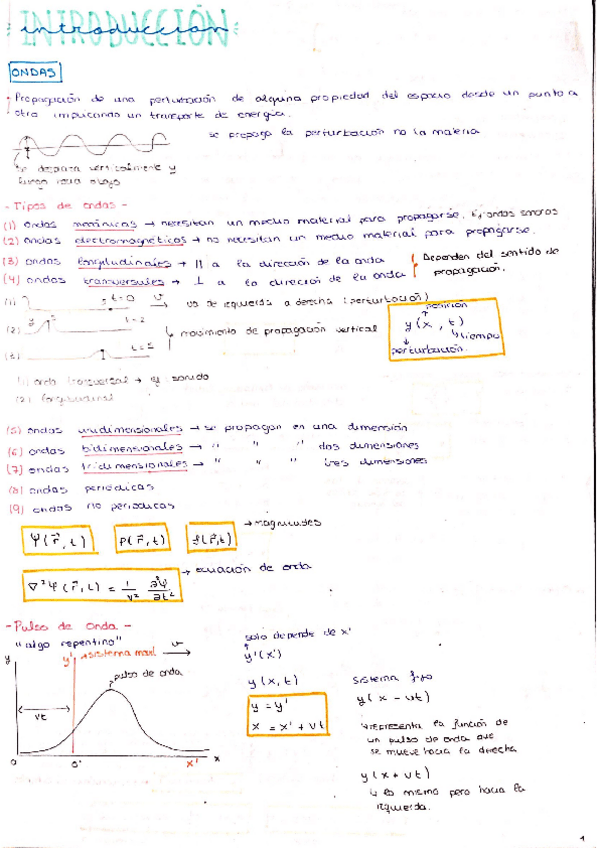 INTRODUCCIÓN
introducción
ONDAS
Propagación de una perturbación de alguna propiedad del espacio desde un punto a
otro implicando un transporte de energía.
se propaga la perturbación no la materia
se desplaza verticalmente y
hacia abajo
- Tipos de ondas -
(1) ondas mecánicas → necesitan un medio material para propagarse. Ej: ondas sonoras
(2) ondas electromagnéticas → no necesitan un medio material para propagarse.
(3) ondas longitudinales → || a la dirección de la onda
(4) ondas transversales → ⊥ a la dirección de la onda
Dependen del sentido de
propagación.
(1) t=0 v → va de izquierda a derecha (perturbación)
(2) t=2
↳ movimiento de propagación vertical
(3)
posición
y(x, t)
↳ tiempo
perturbación
1) onda transversal → ej sonido
(2) longitudinal
(5) ondas unidimensionales → se propagan en una dimensión
(6) ondas bidimensionales → " " " dos dimensiones
(7) ondas tridimensionales → " " " tres dimensiones
(8) ondas periódicas
(9) ondas no periódicas
Ψ(r⃗, t) P(r⃗, t) f(r⃗, t) → magnitudes
∇²Ψ(r⃗, t) = 1/v² ∂²Ψ/∂t² → ecuación de onda
- Pulso de onda -
"algo repentino"
y
y' → sistema móvil
v
pulso de onda
vt
0
0'
x'
x
solo depende de x'
y'(x')
y(x, t)
y = y'
x = x' + vt
sistema fijo
y(x - vt)
↳ representa la función de
un pulso de onda que
se mueve hacia la derecha
y(x + vt)
↳ lo mismo pero hacia la
izquierda.
1